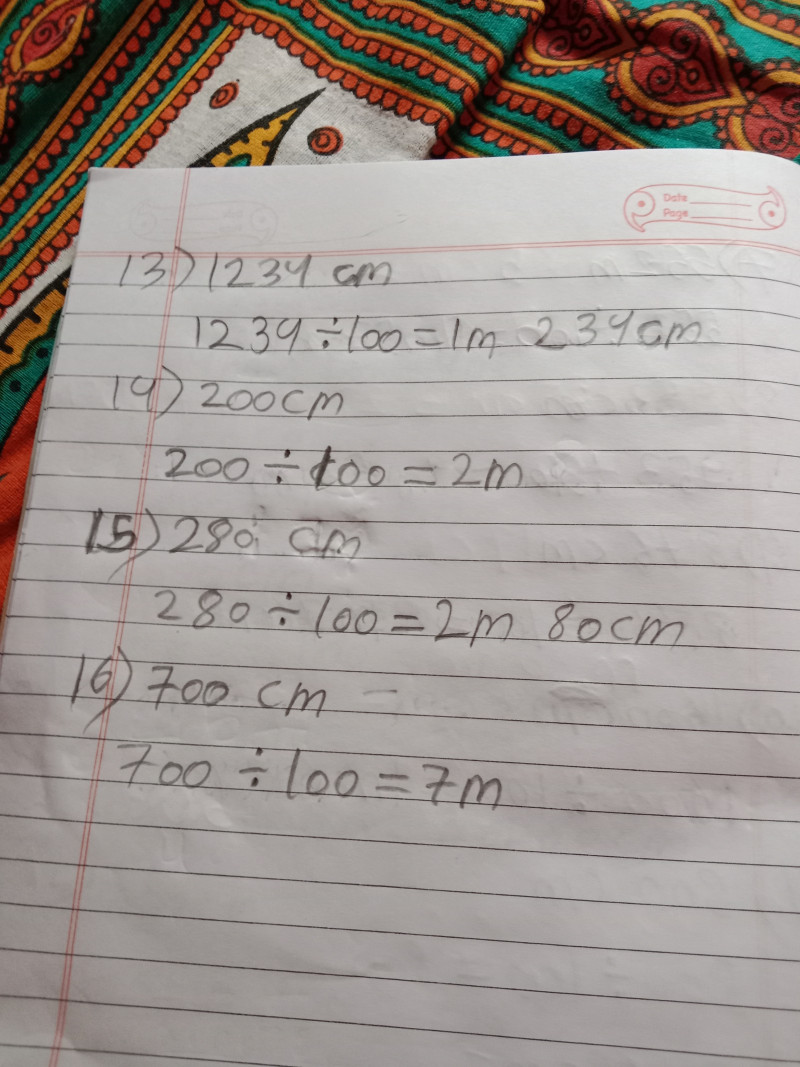 Date
Page
13) 1234 cm
1234 ÷ 100 = 1m 234 cm
14) 200 cm
200 ÷ 100 = 2m
15) 280 cm
280 ÷ 100 = 2m 80 cm
16) 700 cm
700 ÷ 100 = 7m